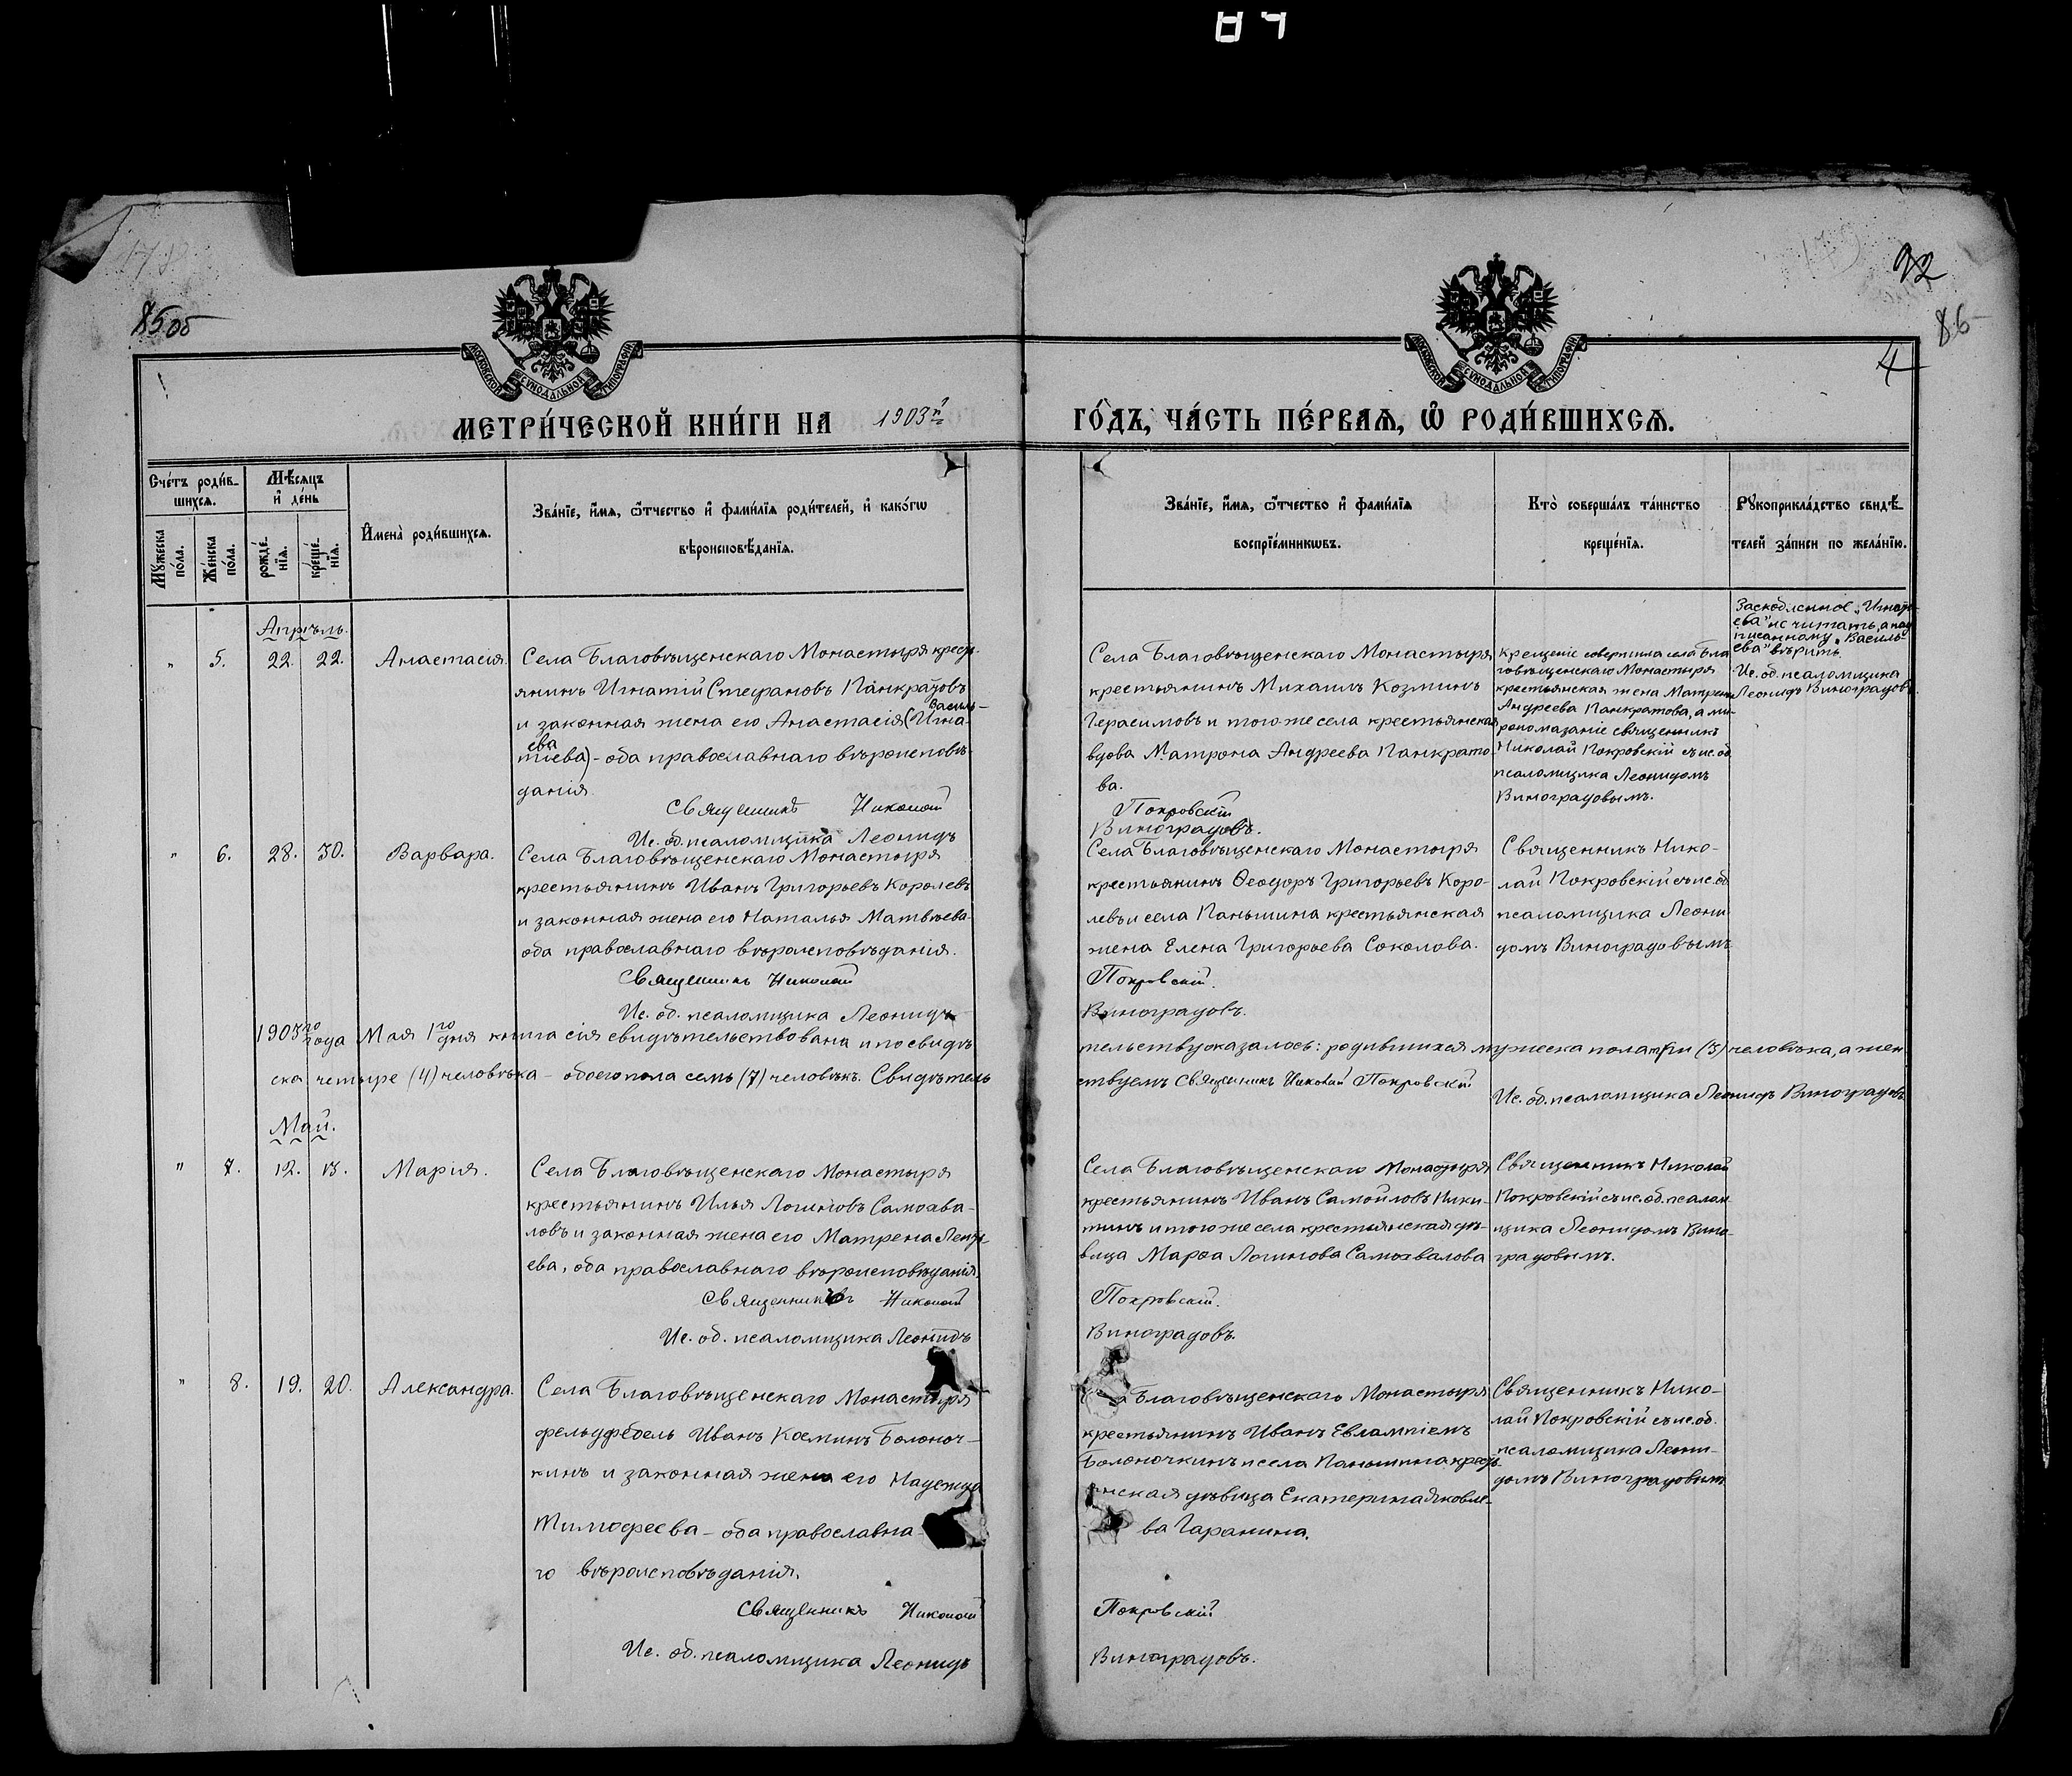 85об
92
86
4
МОСКОВСКОЙ СѴНОДАЛЬНОЙ ТИПОГРАФІИ
МОСКОВСКОЙ СѴНОДАЛЬНОЙ ТИПОГРАФІИ
МЕТРИ́ЧЕСКОЙ КНИ́ГИ НА 1903й
ГО́ДЪ, ЧА́СТЬ ПЕ́РВАѦ, Ѡ҆ РОДИ́ВШИХСѦ.
Сче́тъ роди́в-
шихсѧ.
Мѣ́сѧцъ
и҆ де́нь
Мꙋ́жеска по́ла.
Же́нска по́ла.
рожде́-
нїѧ.
креще́-
нїѧ.
И҆мена̀ роди́вшихсѧ.
Зва́нїе, и҆́мѧ, ѻ҆́тчество и҆ фами́лїѧ роди́телей, и҆ како́гѡ
вѣроисповѣ́данїѧ.
Зва́нїе, и҆́мѧ, ѻ҆́тчество и҆ фами́лїѧ
воспрїе́мникѡвъ.
Кто̀ соверша́лъ та́инство
креще́нїѧ.
Рꙋкоприкла́дство свидѣ́-
телей за́писи по жела́нїю.
Апрѣль.
" 5. 22. 22. Анастасія.
Села Благовѣщенскаго Монастыря кресть-
янинъ Игнатій Стефановъ Панкратовъ
и законная жена его Анастасія (Игна-
Василь-
тіева)- оба православнаго вѣроисповѣ-
ева
данія.
Священникъ Николай
Ис. об. псаломщика Леонидъ
Села Благовѣщенскаго Монастыря
крестьянинъ Михаилъ Козминъ
Герасимовъ и того же села крестьянская
вдова Матрона Андреева Панкрато-
ва.
Покровскій
Виноградовъ.
Крещеніе совершила села Бла-
говѣщенскаго Монастыря
крестьянская жена Матрона
Андреева Панкратова, а ми-
ропомазаніе священникъ
Николай Покровскій съ ис. об.
псаломщика Леонидомъ
Виноградовымъ.
Заскобленное „Игнать-
ева" не читать, а над-
писанному „Василь-
ева" вѣрить.
Ис. об. псаломщика
Леонидъ Виноградовъ.
" 6. 28. 30. Варвара.
Села Благовѣщенскаго Монастыря
крестьянинъ Иванъ Григорьевъ Королевъ
и законная жена его Наталья Матвѣева-
оба православнаго вѣроисповѣданія.
Священникъ Николай
Ис. об. псаломщика Леонидъ
Села Благовѣщенскаго Монастыря
крестьянинъ Ѳеодоръ Григорьевъ Коро-
левъ и села Паньшина крестьянская
жена Елена Григорьева Соколова.
Покровскій.
Виноградовъ.
Священникъ Нико-
лай Покровскій съ ис. об.
псаломщика Леони-
домъ Виноградовымъ
1903го года Мая 1го дня книга сія свидѣтельствована и по свидѣ-
тельству оказалось: родившихся мужеска пола три (3) человѣка, а жен-
ска четыре (4) человѣка - обоего пола семь (7) человѣкъ. Свидѣтель-
ствуемъ Священникъ Николай Покровскій
Ис. об. псаломщика Леонидъ Виноградовъ
Май.
" 7. 12. 13. Марія.
Села Благовѣщенскаго Монастыря
крестьянинъ Илья Логиновъ Самохва-
ловъ и законная жена его Матрена Леонть-
ева, оба православнаго вѣроисповѣданія.
Священникъ Николай
Ис. об. псаломщика Леонидъ
Села Благовѣщенскаго Монастыря
крестьянинъ Иванъ Самойловъ Ники-
тинъ и того же села крестьянская дѣ-
вица Марѳа Логинова Самохвалова
Покровскій.
Виноградовъ.
Священникъ Николай
Покровскій съ ис. об. псалом-
щика Леонидомъ Вино-
градовымъ.
" 8. 19. 20. Александра.
Села Благовѣщенскаго Монастыря
фельдфебель Иванъ Козминъ Болоноч-
кинъ и законная жена его Надежда
Тимофеева - оба православна-
го вѣроисповѣданія.
Священникъ Николай
Ис. об. псаломщика Леонидъ
а Благовѣщенскаго Монастыря
крестьянинъ Иванъ Евлампіевъ
Болоночкинъ и села Паньшина кресть-
янская дѣвица Екатерина Яковле-
ва Гаранина.
Покровскій
Виноградовъ.
Священникъ Нико-
лай Покровскій съ ис. об.
псаломщика Леони-
домъ Виноградовымъ